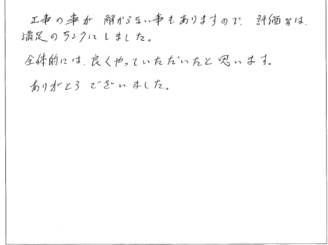 工事の事が解からない事もありますので、評価等は、
満足のランクにしました。
全体的には、良くやっていただいたと思います。
ありがとうございました。